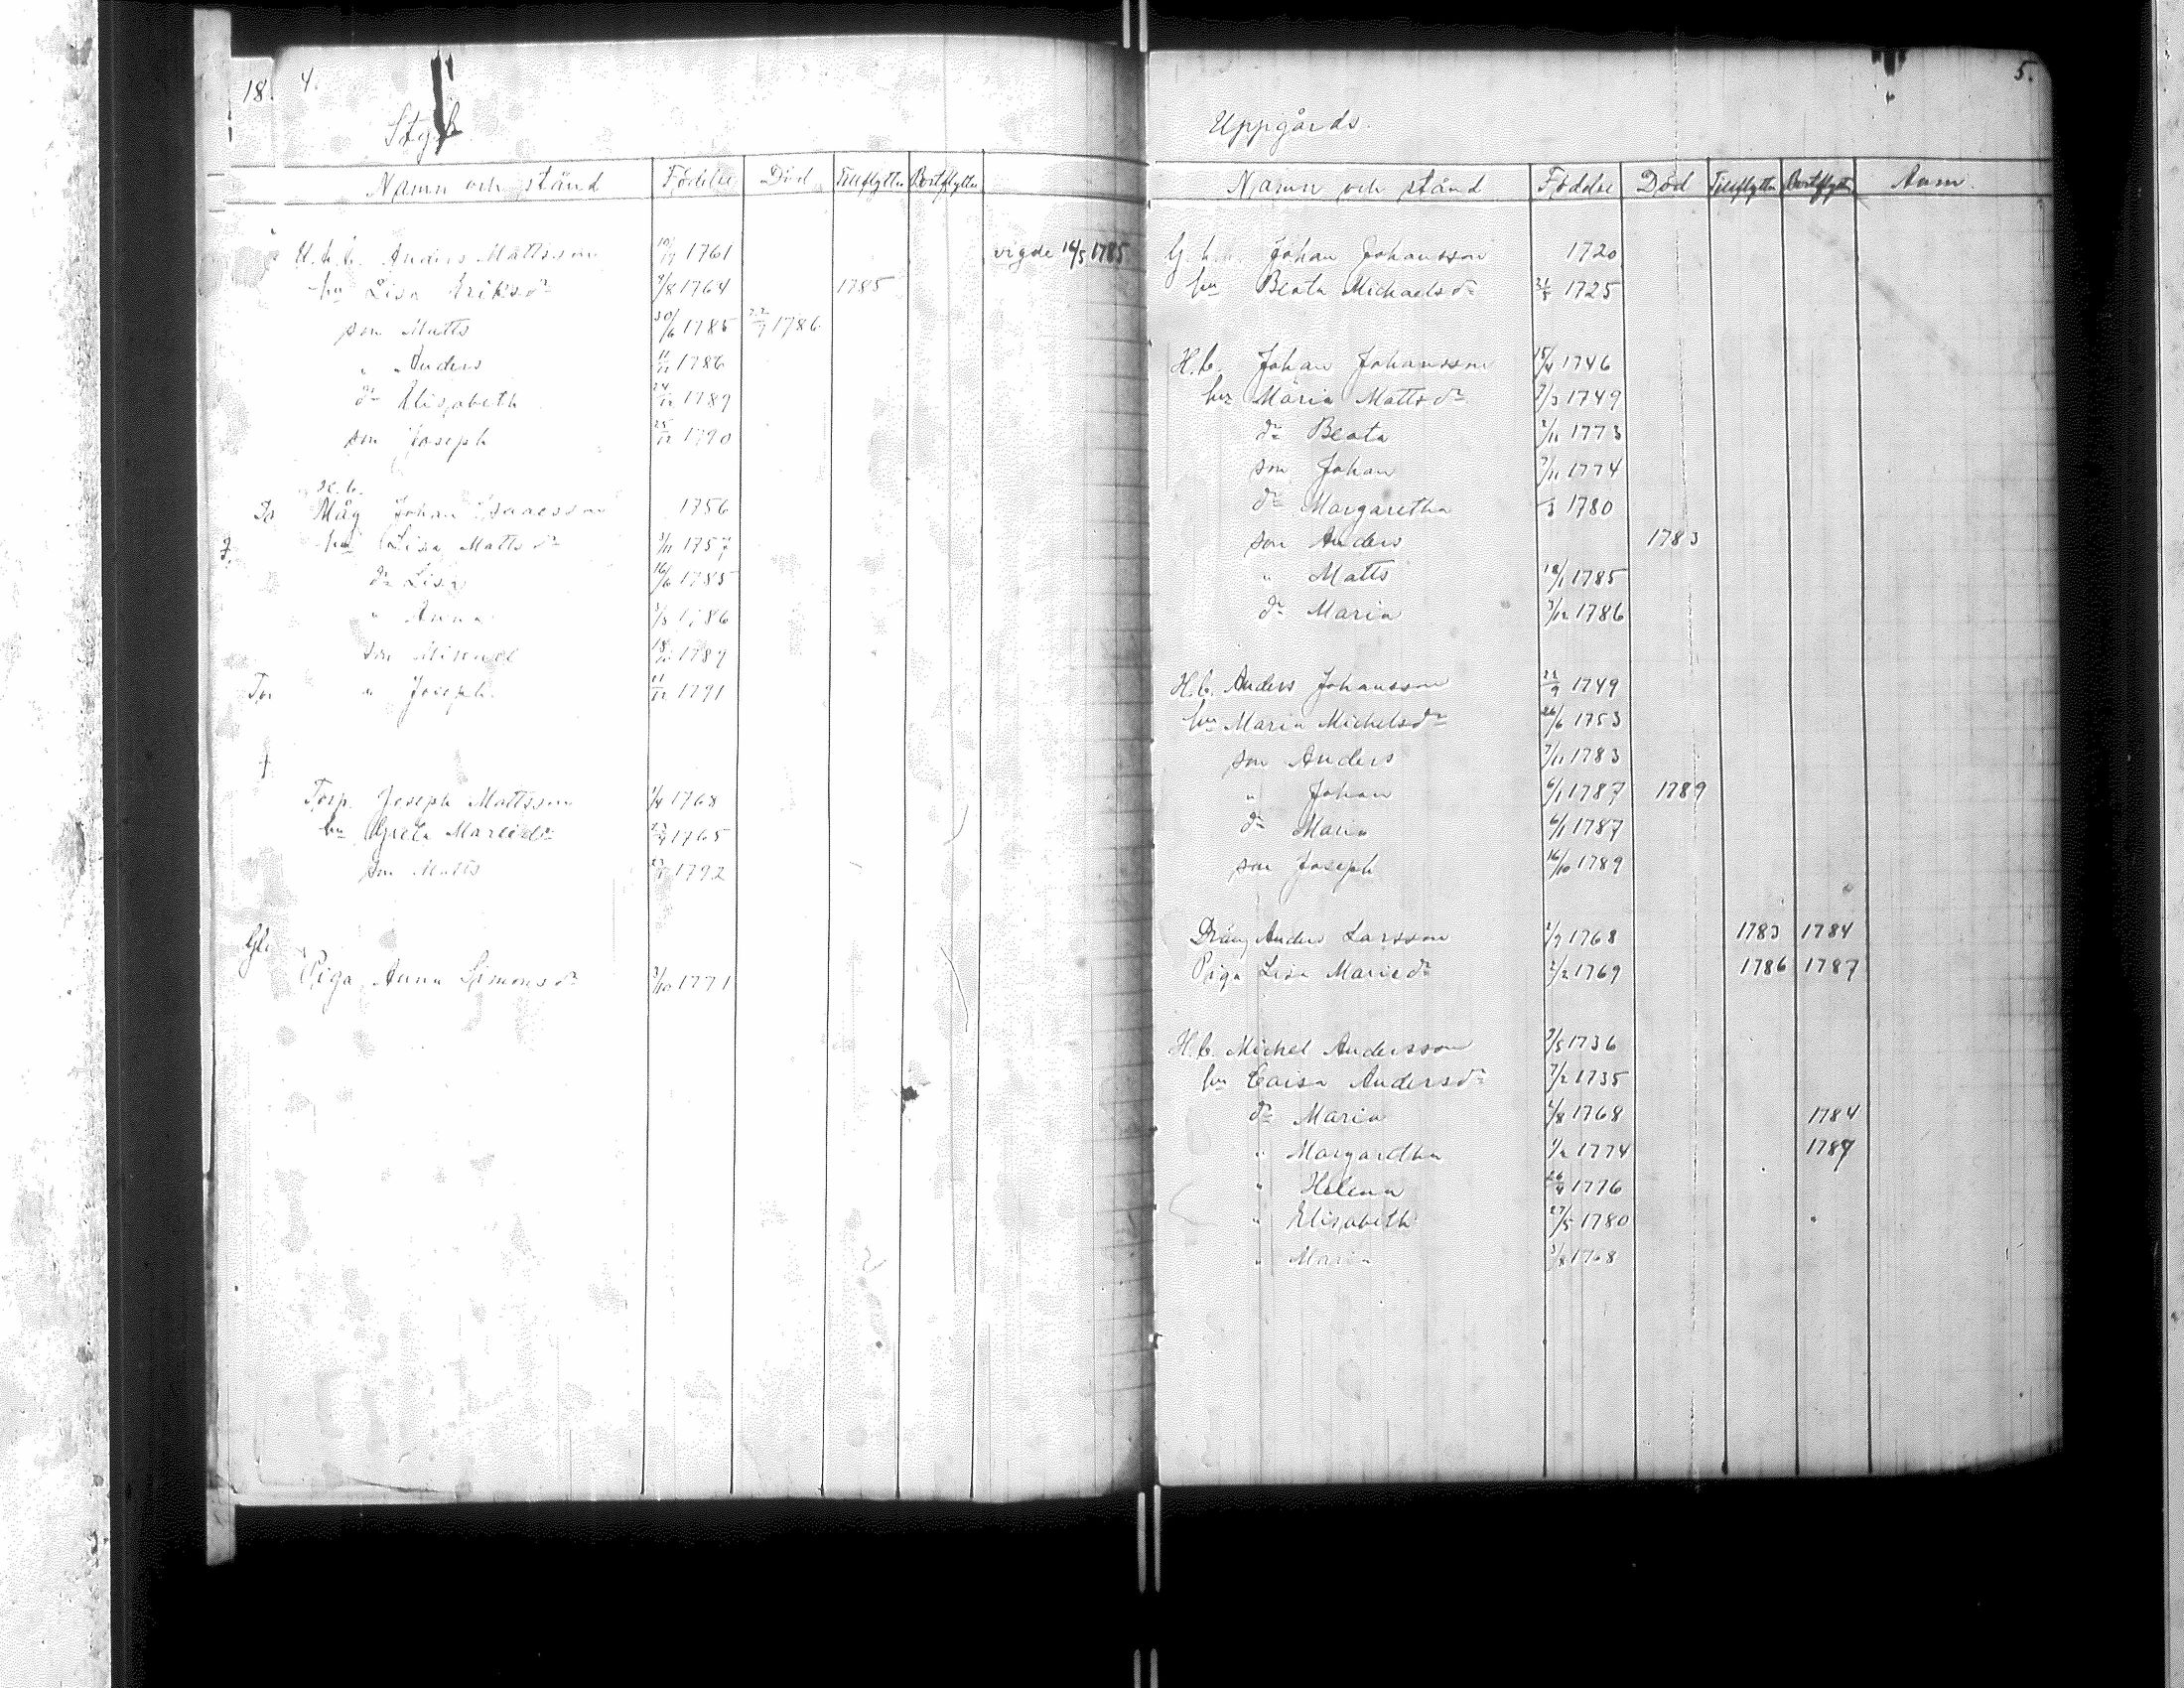 18. 4.
Namn och stånd Födelse Död Tillflyttn Bortflyttn
H.b. Anders Mattsson 1761 vigde 16/5 1785
hu Lisa Eriksdr 1764 1785
son Matts 30/6 1785 22/7 1786
" Anders 1786
dr Elisabeth 24/12 1789
son Joseph 25/12 1790
H.b.
Måg Johan Isaacsson 1756
hu Lisa Mattsdr 3/11 1757
dr Lisa 16/6 1785
" Anna 1786
son Mikael 1789
" Joseph 1791
Torp. Joseph Mattsson 1/4 1768
hu Greta 1765
son Matts 1792
Piga Anna Simonsdr 1771
5.
Uppgårds.
Namn och stånd Födelse Död Tillflyttn Bortflyttn Anm.
Johan Johansson 1720
hu Beata Michaelsdr 1725
H.b. Johan Johansson 15/4 1746
hu Maria Mattsdr 7/3 1749
dr Beata 2/11 1773
son Johan 7/11 1774
dr Margaretha 1780
son Anders 1783
" Matts 18/1 1785
dr Maria 3/12 1786
H.b. Anders Johansson 1749
hu Maria Michelsdr 26/6 1753
son Anders 7/11 1783
" Johan 6/1 1787 1789
dr Maria 6/1 1787
son Joseph 16/10 1789
Dräng Anders Larsson 1768 1783 1784
Piga Lisa 2/2 1769 1786 1787
H.b. Michel Andersson 3/5 1736
hu Caisa Andersdr 7/2 1735
dr Maria 2/8 1768 1784
" Margaretha 1774 1787
" Helena 26/4 1776
" Elisabeth 27/5 1780
" Maria 1768